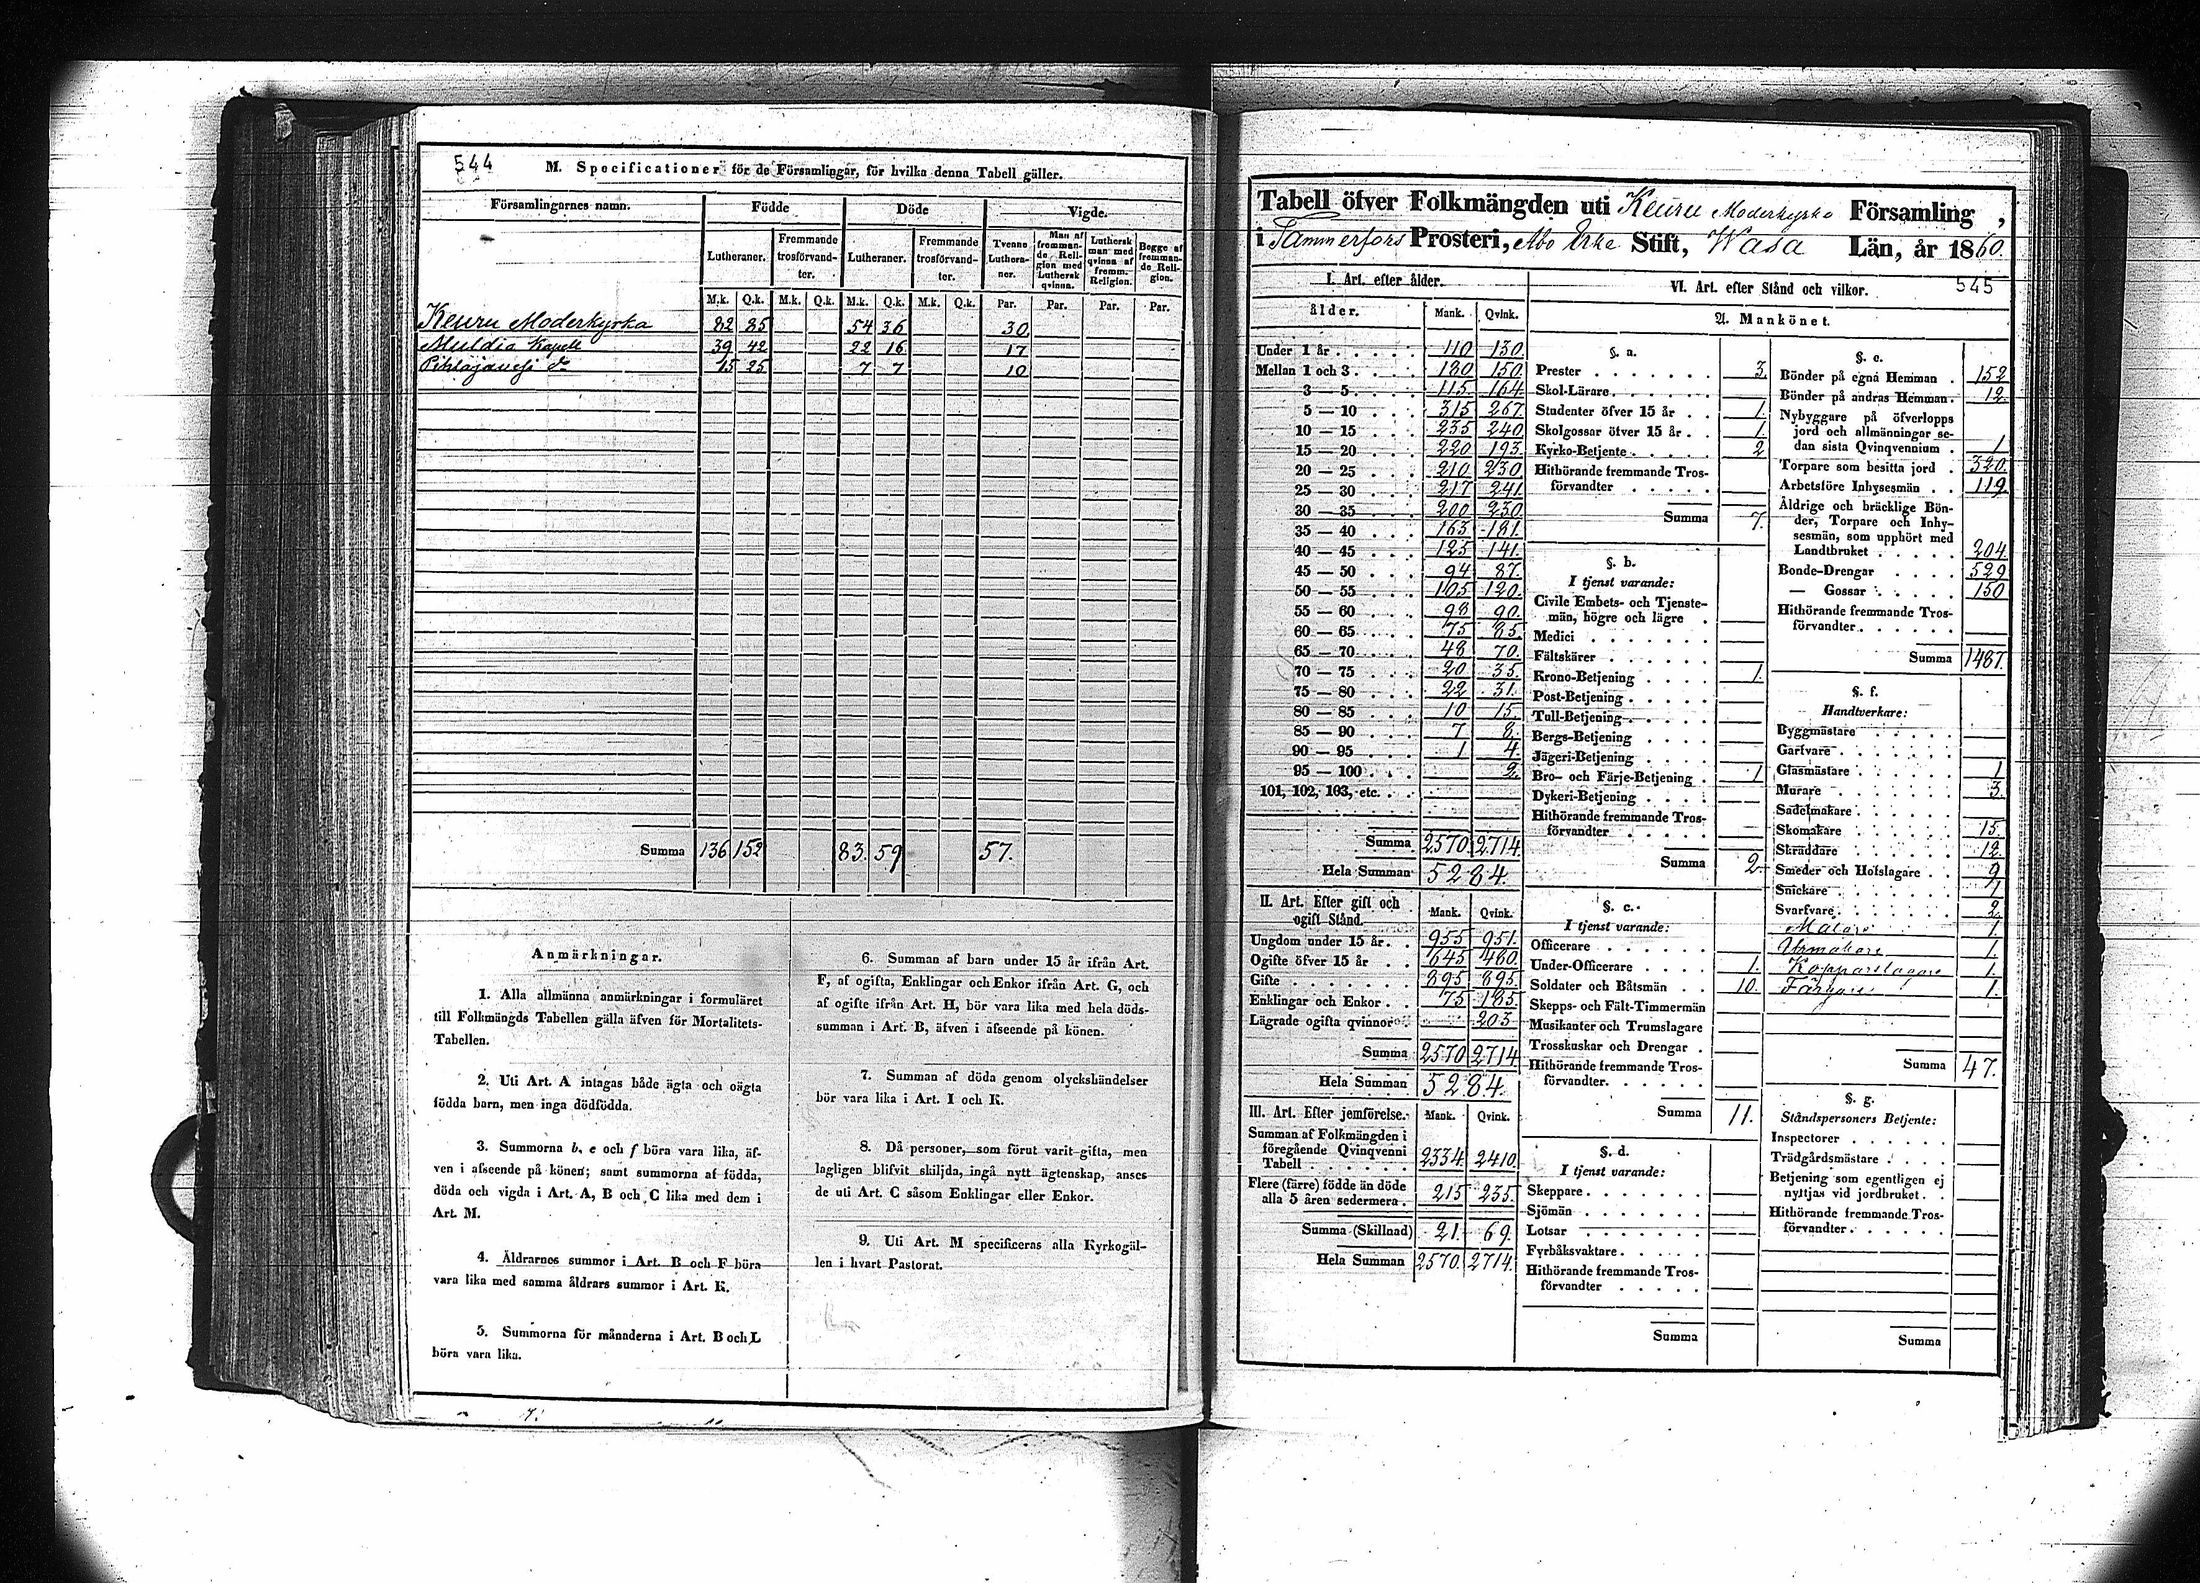 544
M. Specificationer för de Församlingar, för hvilka denna Tabell gäller.
Församlingarnes namn. Födde Döde Vigde.
Lutheraner. Fremmande trosförvandter. Lutheraner. Fremmande trosförvandter. Tvenne Lutheraner. Man af fremmande Religion med Luthersk qvinna. Luthersk man med qvinna af fremm. Religion. Begge af fremmande Religion.
M.k. Q.k. M.k. Q.k. M.k. Q.k. M.k. Q.k. Par. Par. Par. Par.
Keuru Moderkyrka 82 85 54 36 30.
Multia Kapell 39 42 22 16 17
Pihlajavesi do 15 25 7 7 10
Summa 136 152 83. 59 57.
Anmärkningar.
1. Alla allmänna anmärkningar i formuläret
till Folkmängds Tabellen gälla äfven för Mortalitets-
Tabellen.
2. Uti Art. A intagas både ägta och oägta
födda barn, men inga dödfödda.
3. Summorna b, e och f böra vara lika, äf-
ven i afseende på könen; samt summorna af födda,
döda och vigda i Art. A, B och C lika med dem i
Art. M.
4. Åldrarnes summor i Art. B och F böra
vara lika med samma åldrars summor i Art. K.
5. Summorna för månaderna i Art. B och L
böra vara lika.
6. Summan af barn under 15 år ifrån Art.
F, af ogifta, Enklingar och Enkor ifrån Art. G, och
af ogifte ifrån Art. H, bör vara lika med hela döds-
summan i Art. B, äfven i afseende på könen.
7. Summan af döda genom olyckshändelser
bör vara lika i Art. I och K.
8. Då personer, som förut varit gifta, men
lagligen blifvit skiljda, ingå nytt ägtenskap, anses
de uti Art. C såsom Enklingar eller Enkor.
9. Uti Art. M specificeras alla Kyrkogäl-
len i hvart Pastorat.
Tabell öfver Folkmängden uti Keuru Moderkyrko Församling,
i Tammerfors Prosteri, Åbo Erke Stift, Wasa Län, år 1860.
545
I. Art. efter ålder.
ålder. Mank. Qvink.
Under 1 år 110 130.
Mellan 1 och 3 180 150.
3 — 5 115 164.
5 — 10 315 267.
10 — 15 235 240
15 — 20 220 193.
20 — 25 210 230
25 — 30 217 241.
30 — 35 200 230
35 — 40 163 181.
40 — 45 125 141.
45 — 50 94 87.
50 — 55 105 120.
55 — 60 98 90.
60 — 65 75 85.
65 — 70 48 70.
70 — 75 20 35.
75 — 80 22 31.
80 — 85 10 15.
85 — 90 7 8.
90 — 95 1 4.
95 — 100 2.
101, 102, 103, etc.
Summa 2570. 2714.
Hela Summan 5284.
II. Art. Efter gift och ogift Stånd. Mank. Qvink.
Ungdom under 15 år 955 951.
Ogifte öfver 15 år 645 480.
Gifte 895 895.
Enklingar och Enkor 75 185.
Lägrade ogifta qvinnor 203
Summa 2570 2714
Hela Summan 5284.
III. Art. Efter jemförelse. Mank. Qvink.
Summan af Folkmängden i
föregående Qvinqvenni
Tabell 2334 2410.
Flere (färre) födde än döde
alla 5 åren sedermera 215 235.
Summa (Skillnad) 21. 69.
Hela Summan 2570. 2714.
VI. Art. efter Stånd och vilkor.
A. Mankönet.
§. a.
Prester 3.
Skol-Lärare
Studenter öfver 15 år 1.
Skolgossar öfver 15 år 1.
Kyrko-Betjente 2
Hithörande fremmande Tros-
förvandter
Summa 7.
§. b.
I tjenst varande:
Civile Embets- och Tjenste-
män, högre och lägre
Medici
Fältskärer
Krono-Betjening 1.
Post-Betjening
Tull-Betjening
Bergs-Betjening
Jägeri-Betjening
Bro- och Färje-Betjening 1
Dykeri-Betjening
Hithörande fremmande Tros-
förvandter
Summa 2.
§. c.
I tjenst varande:
Officerare
Under-Officerare 1.
Soldater och Båtsmän 10.
Skepps- och Fält-Timmermän
Musikanter och Trumslagare
Trosskuskar och Drengar
Hithörande fremmande Tros-
förvandter
Summa 11.
§. d.
I tjenst varande:
Skeppare
Sjömän
Lotsar
Fyrbåksvaktare
Hithörande fremmande Tros-
förvandter
Summa
§. e.
Bönder på egna Hemman 152
Bönder på andras Hemman 12.
Nybyggare på öfverlopps
jord och allmänningar se-
dan sista Qvinqvennium 1
Torpare som besitta jord 320.
Arbetsföre Inhysesmän 119.
Åldrige och bräcklige Bön-
der, Torpare och Inhy-
sesmän, som upphört med
Landtbruket 204.
Bonde-Drengar 529
— Gossar 150
Hithörande fremmande Tros-
förvandter
Summa 1487.
§. f.
Handtverkare:
Byggmästare
Garfvare
Glasmästare 1
Murare 3.
Sadelmakare
Skomakare 15.
Skräddare 12.
Smeder och Hofslagare 9
Snickare 1
Svarfvare 2.
Målare 1.
Urmakare 1.
Kopparslagare 1.
Färgare 1.
Summa 47.
§. g.
Ståndspersoners Betjente:
Inspectorer
Trädgårdsmästare
Betjening som egentligen ej
nyttjas vid jordbruket
Hithörande fremmande Tros-
förvandter
Summa